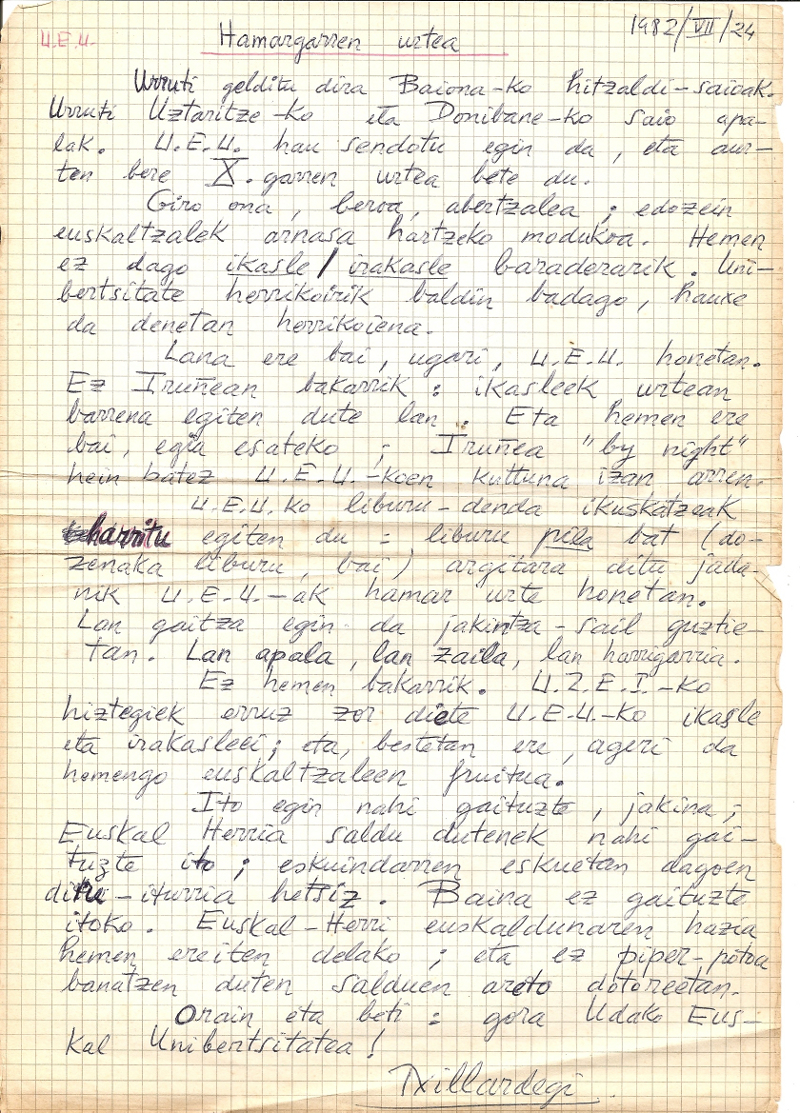 1982/VII/24
U.E.U.
Hamargarren urtea
Urruti gelditu dira Baiona-ko hitzaldi-saioak.
Urruti Uztaritze-ko eta Donibane-ko saio apa-
lak. U.E.U. hau sendotu egin da, eta aur-
ten bere X.garren urtea bete du.
Giro ona, beroa, abertzalea; edozein
euskaltzalek arnasa hartzeko modukoa. Hemen
ez dago ikasle/irakasle baraderarik. Uni-
bertsitate herrikoirik baldin badago, hauxe
da denetan herrikoiena.
Lana ere bai, ugari, U.E.U. honetan.
Ez Iruñean bakarrik: ikasleek urtean
barrena egiten dute lan. Eta hemen ere
bai, egia esateko; Iruñea "by night"
hein batez U.E.U.-koen kuttuna izan arren.
U.E.U.ko liburu-denda ikuskatzeak
harritu egiten du: liburu pila bat (do-
zenaka liburu, bai) argitara ditu jada-
nik U.E.U.-ak hamar urte honetan.
Lan gaitza egin da jakintza-sail guztie-
tan. Lan apala, lan zaila, lan harrigarria.
Ez hemen bakarrik. U.Z.E.I.-ko
hiztegiek erruz zor diete U.E.U.-ko ikasle
eta irakasleei; eta, bestetan ere, ageri da
hemengo euskaltzaleen fruitua.
Ito egin nahi gaituzte, jakina;
Euskal Herria saldu dutenek nahi gai-
tuzte ito; eskuindarren eskuetan dagoen
diru-iturria hetsiz. Baina ez gaituzte
itoko. Euskal-Herri euskaldunaren hazia
hemen ereiten delako; eta ez piper-potoa
banatzen duten salduen areto dotoreetan.
Orain eta beti: gora Udako Eus-
kal Unibertsitatea!
Txillardegi